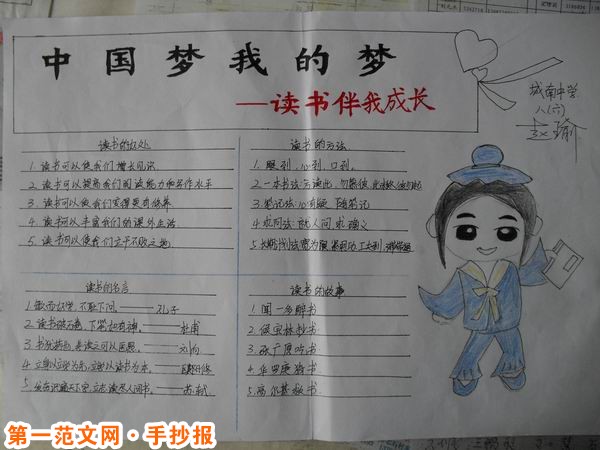 中国梦我的梦
——读书伴我成长
城南中学
八(六)
读书的好处
1. 读书可以使我们增长见识。
2. 读书可以提高我们阅读能力和写作水平
3. 读书可以使我们变得更有修养
4. 读书可以丰富我们的课外生活
5. 读书可以使我们立于不败之地
读书的方法
1. 眼到、心到、口到。
2. 一本书法:方读此,勿慕彼,此未终,彼勿起
3. 笔记法:心有疑 随笔记
4. 求问法 就人问 求确义
5. 长期计划法:宽为限 紧用功 工夫到 滞塞通
读书的名言
1. 敏而好学,不耻下问。——孔子
2. 读书破万卷,下笔如有神。——杜甫
3. 书犹药也,善读之可以医愚。——刘向
4. 立身以立学为先,立学以读书为本。——欧阳修
5. 发奋识遍天下字,立志读尽人间书。——苏轼
读书的故事
1. 闻一多醉书
2. 侯宝林抄书
3. 张广厚吃书
4. 华罗庚猜书
5. 高尔基救书
第一范文网·手抄报